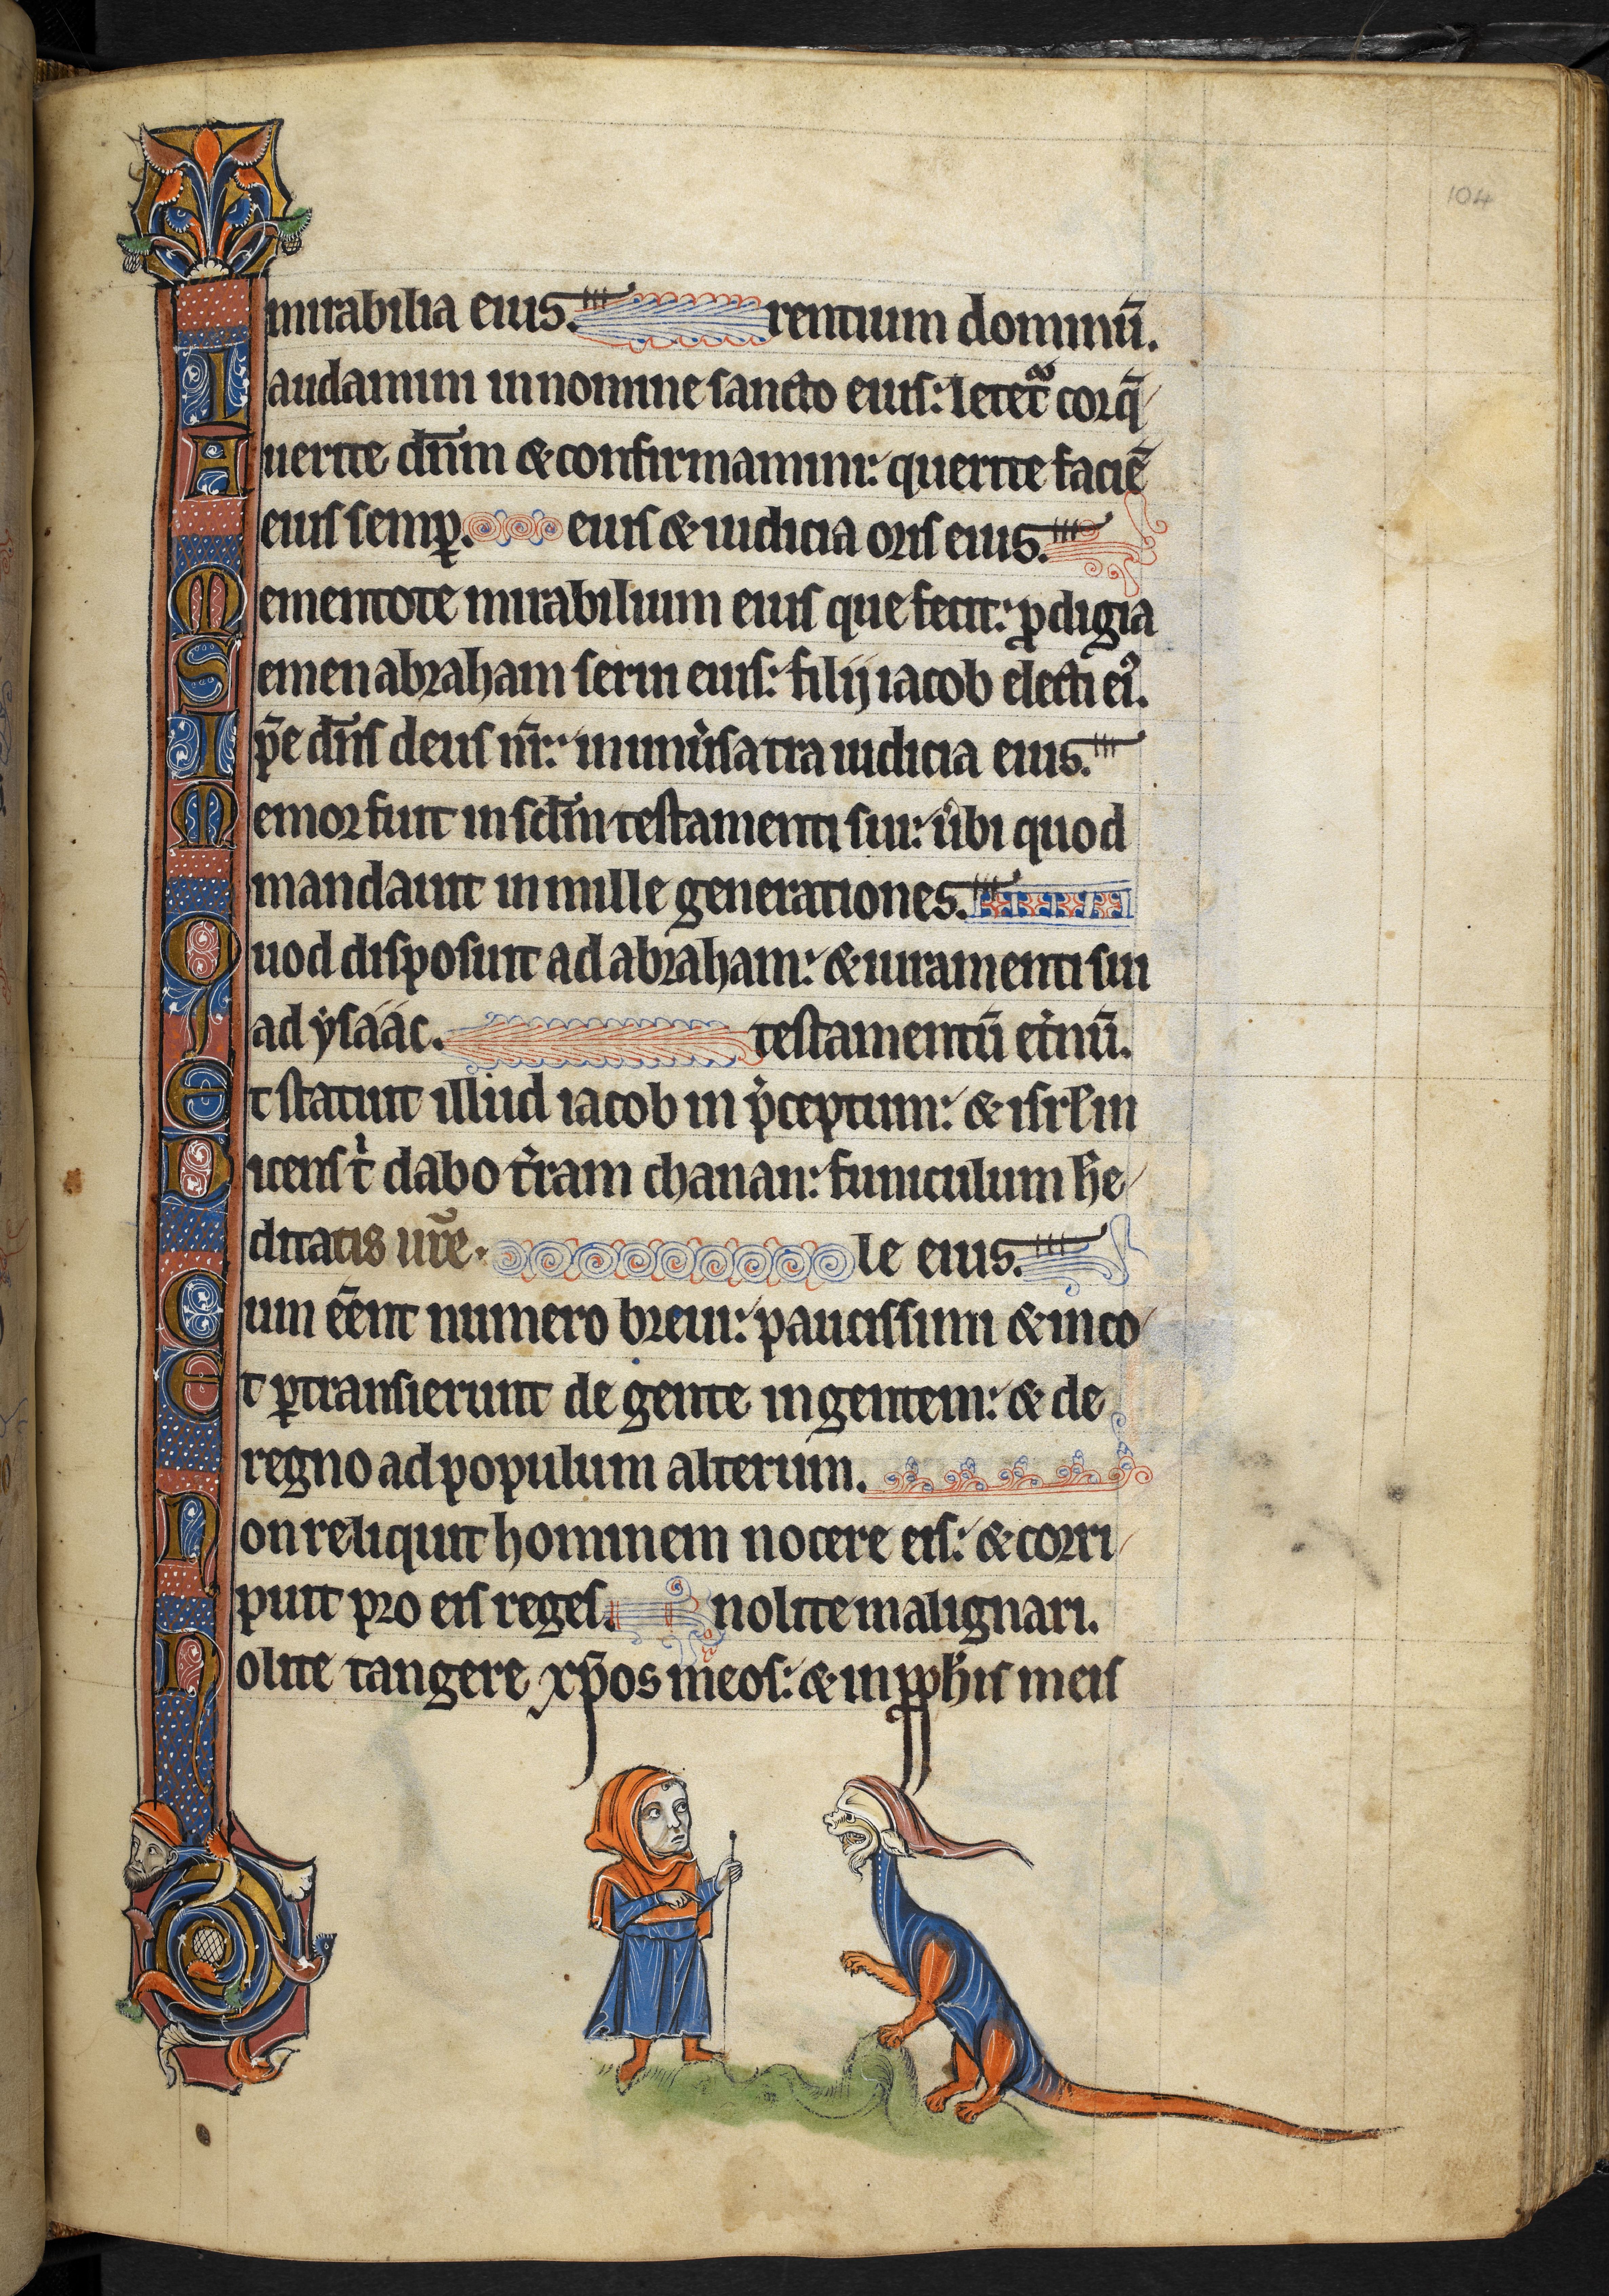 104
mirabilia eius. rentium dominū.
Laudamini in nomine sancto eius: letet̄ cor q̄
Querite dn̄m & confirmamini: querite faciē
eius semꝑ. eius & iudicia oris eius.
Mementote mirabilium eius que fecit: ꝓdigia
Semen abraham serui eius: filij iacob electi eiꝰ.
Ip̄e dn̄s deus nr̄: in uniu̓sa tra iudicia eius.
Memor fuit in scl̄m testamenti sui: u̓bi quod
mandauit in mille generationes.
Quod disposuit ad abraham: & iuramenti sui
ad ysáác. testamentū et̓nū.
Et statuit illud iacob in p̓ceptum: & isrl̄ in
Dicens t̓ dabo t̓ram chanan: funiculum h̄e
ditatis ur̄e. le eius.
Cum ēent numero breui: paucissimi & inco
Et ꝑtransierunt de gente in gentem: & de
regno ad populum alterum.
Non reliquit hominem nocere eis: & corri
puit pro eis reges. nolite malignari.
Nolite tangere xp̄os meos: & in ꝓph̓is meis